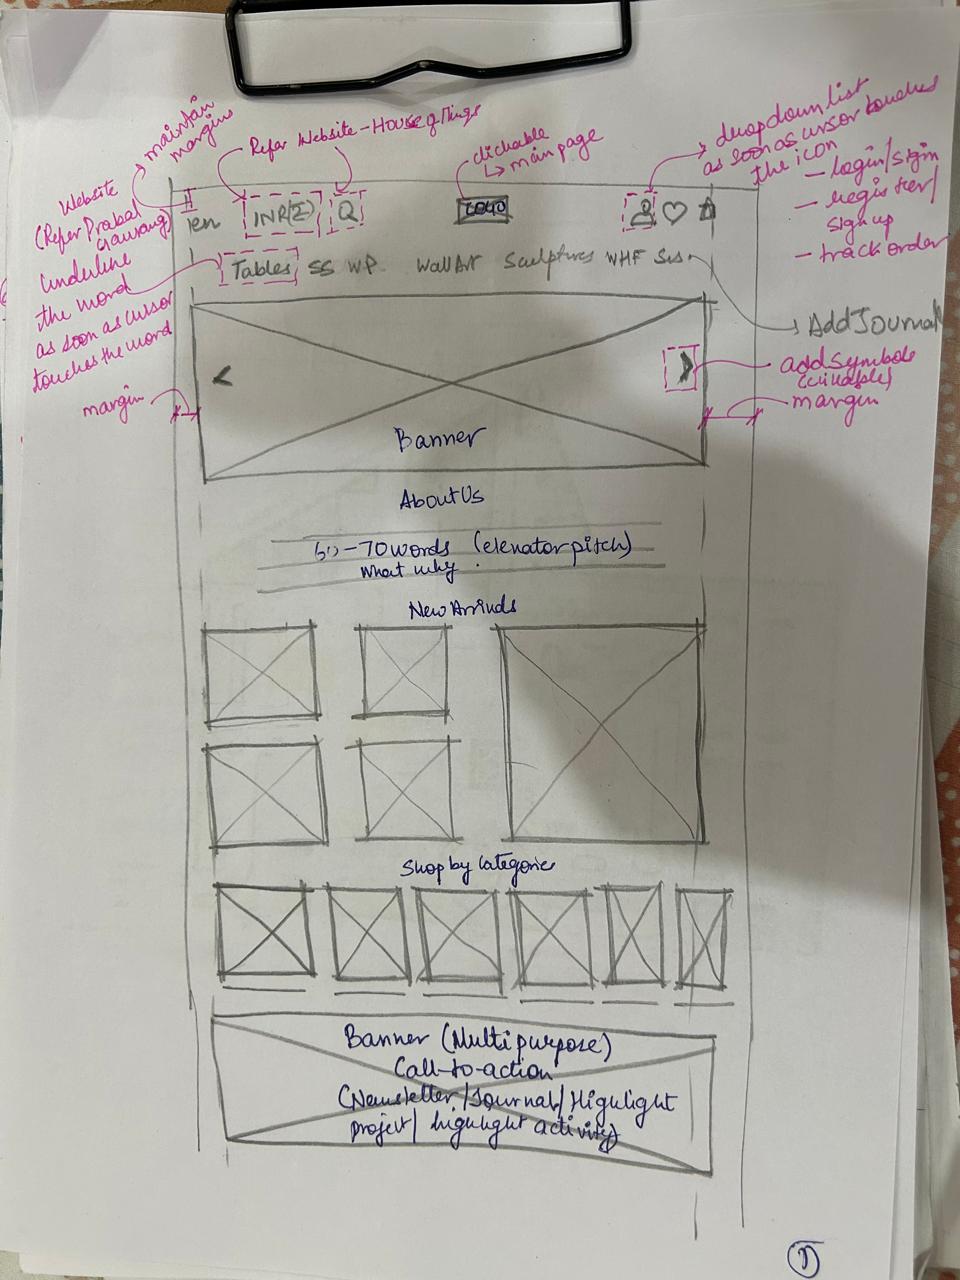 maintain
margins
Refer Website - House of Things
clickable
main page
dropdown list
as soon as cursor touches
the icon
- login/sign
- register/
sign up
- track order
Website
(Refer Prabal
Gaurang)
underline
the word
as soon as cursor
touches the word
margin
en
INR(₹)
Q
LOGO
Tables SS WP. Wall Art Sculptures WHF Sis
Add Journal
add symbole
(clickable)
margin
<
>
Banner
About Us
60-70 words (elevator pitch)
What why
New Arrivals
Shop by Categories
Banner (Multipurpose)
Call-to-action
(Newsletter/Journal/Highlight
project/ highlight activity)
1